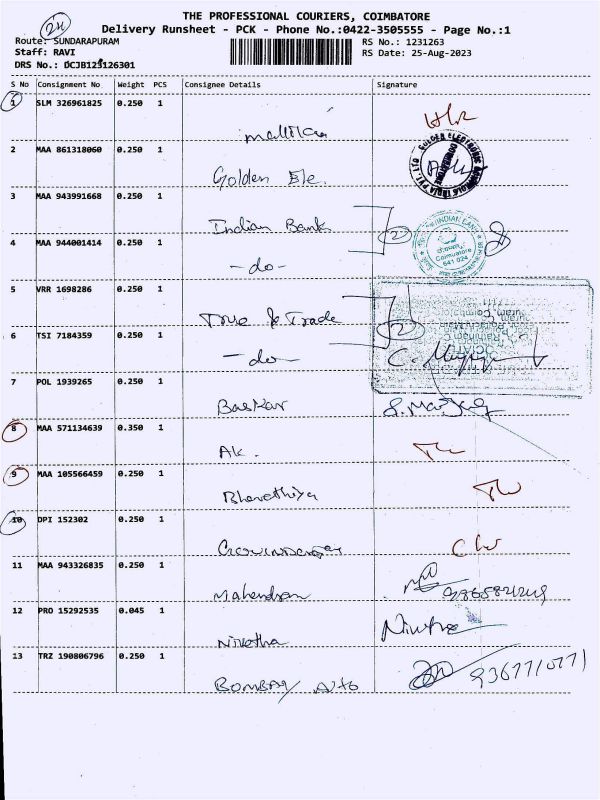 2H
THE PROFESSIONAL COURIERS, COIMBATORE
Delivery Runsheet - PCK - Phone No.:0422-3505555 - Page No.:1
Route: SUNDARAPURAM
RS No.: 1231263
Staff: RAVI
RS Date: 25-Aug-2023
DRS No.: DCJB123126301
S No Consignment No Weight PCS Consignee Details Signature
1 SLM 326961825 0.250 1
mallika
2 MAA 861318060 0.250 1
Golden Ele.
3 MAA 943991668 0.250 1
Indian Bank 2
4 MAA 944001414 0.250 1
- do -
5 VRR 1698286 0.250 1
True & Trade 2
6 TSI 7184359 0.250 1
- do -
7 POL 1939265 0.250 1
Baskar
8 MAA 571134639 0.350 1
AK.
9 MAA 105566459 0.250 1
Bharathiya
10 DPI 152302 0.250 1
11 MAA 943326835 0.250 1
Mahendran
12 PRO 15292535 0.045 1
Nivetha
13 TRZ 190806796 0.250 1
BOMBAY Auto
INDIAN BANK
Coimbatore
641 024